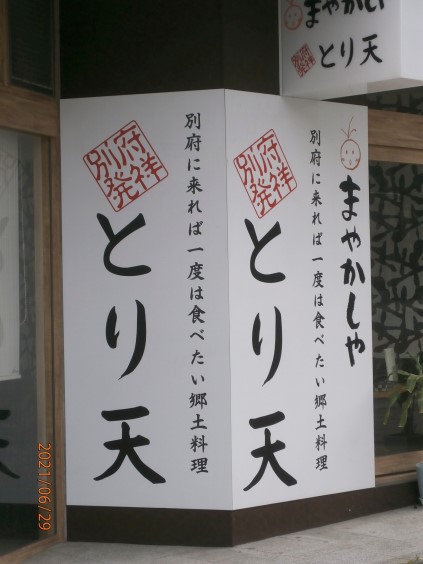 まやかしや
とり天
別府に来れば一度は食べたい郷土料理
別府発祥
とり天
まやかしや
別府に来れば一度は食べたい郷土料理
別府発祥
とり天
2021/06/29